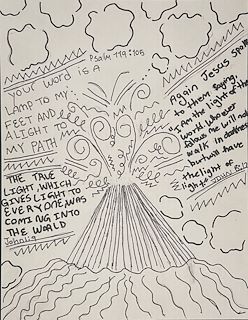 Psalm 119:105
your word is A
LAMP TO MY
FEET AND
A LIGHT TO
MY PATH
Again Jesus Spoke
to them saying,
"I AM the light of the
world, whoever
follows me will not
walk in darkness
but will have
the light of
life" JOHN 8:12
THE TRUE
LIGHT, WHICH
GIVES LIGHT TO
EVERYONE, WAS
COMING INTO
THE WORLD
John 1:9